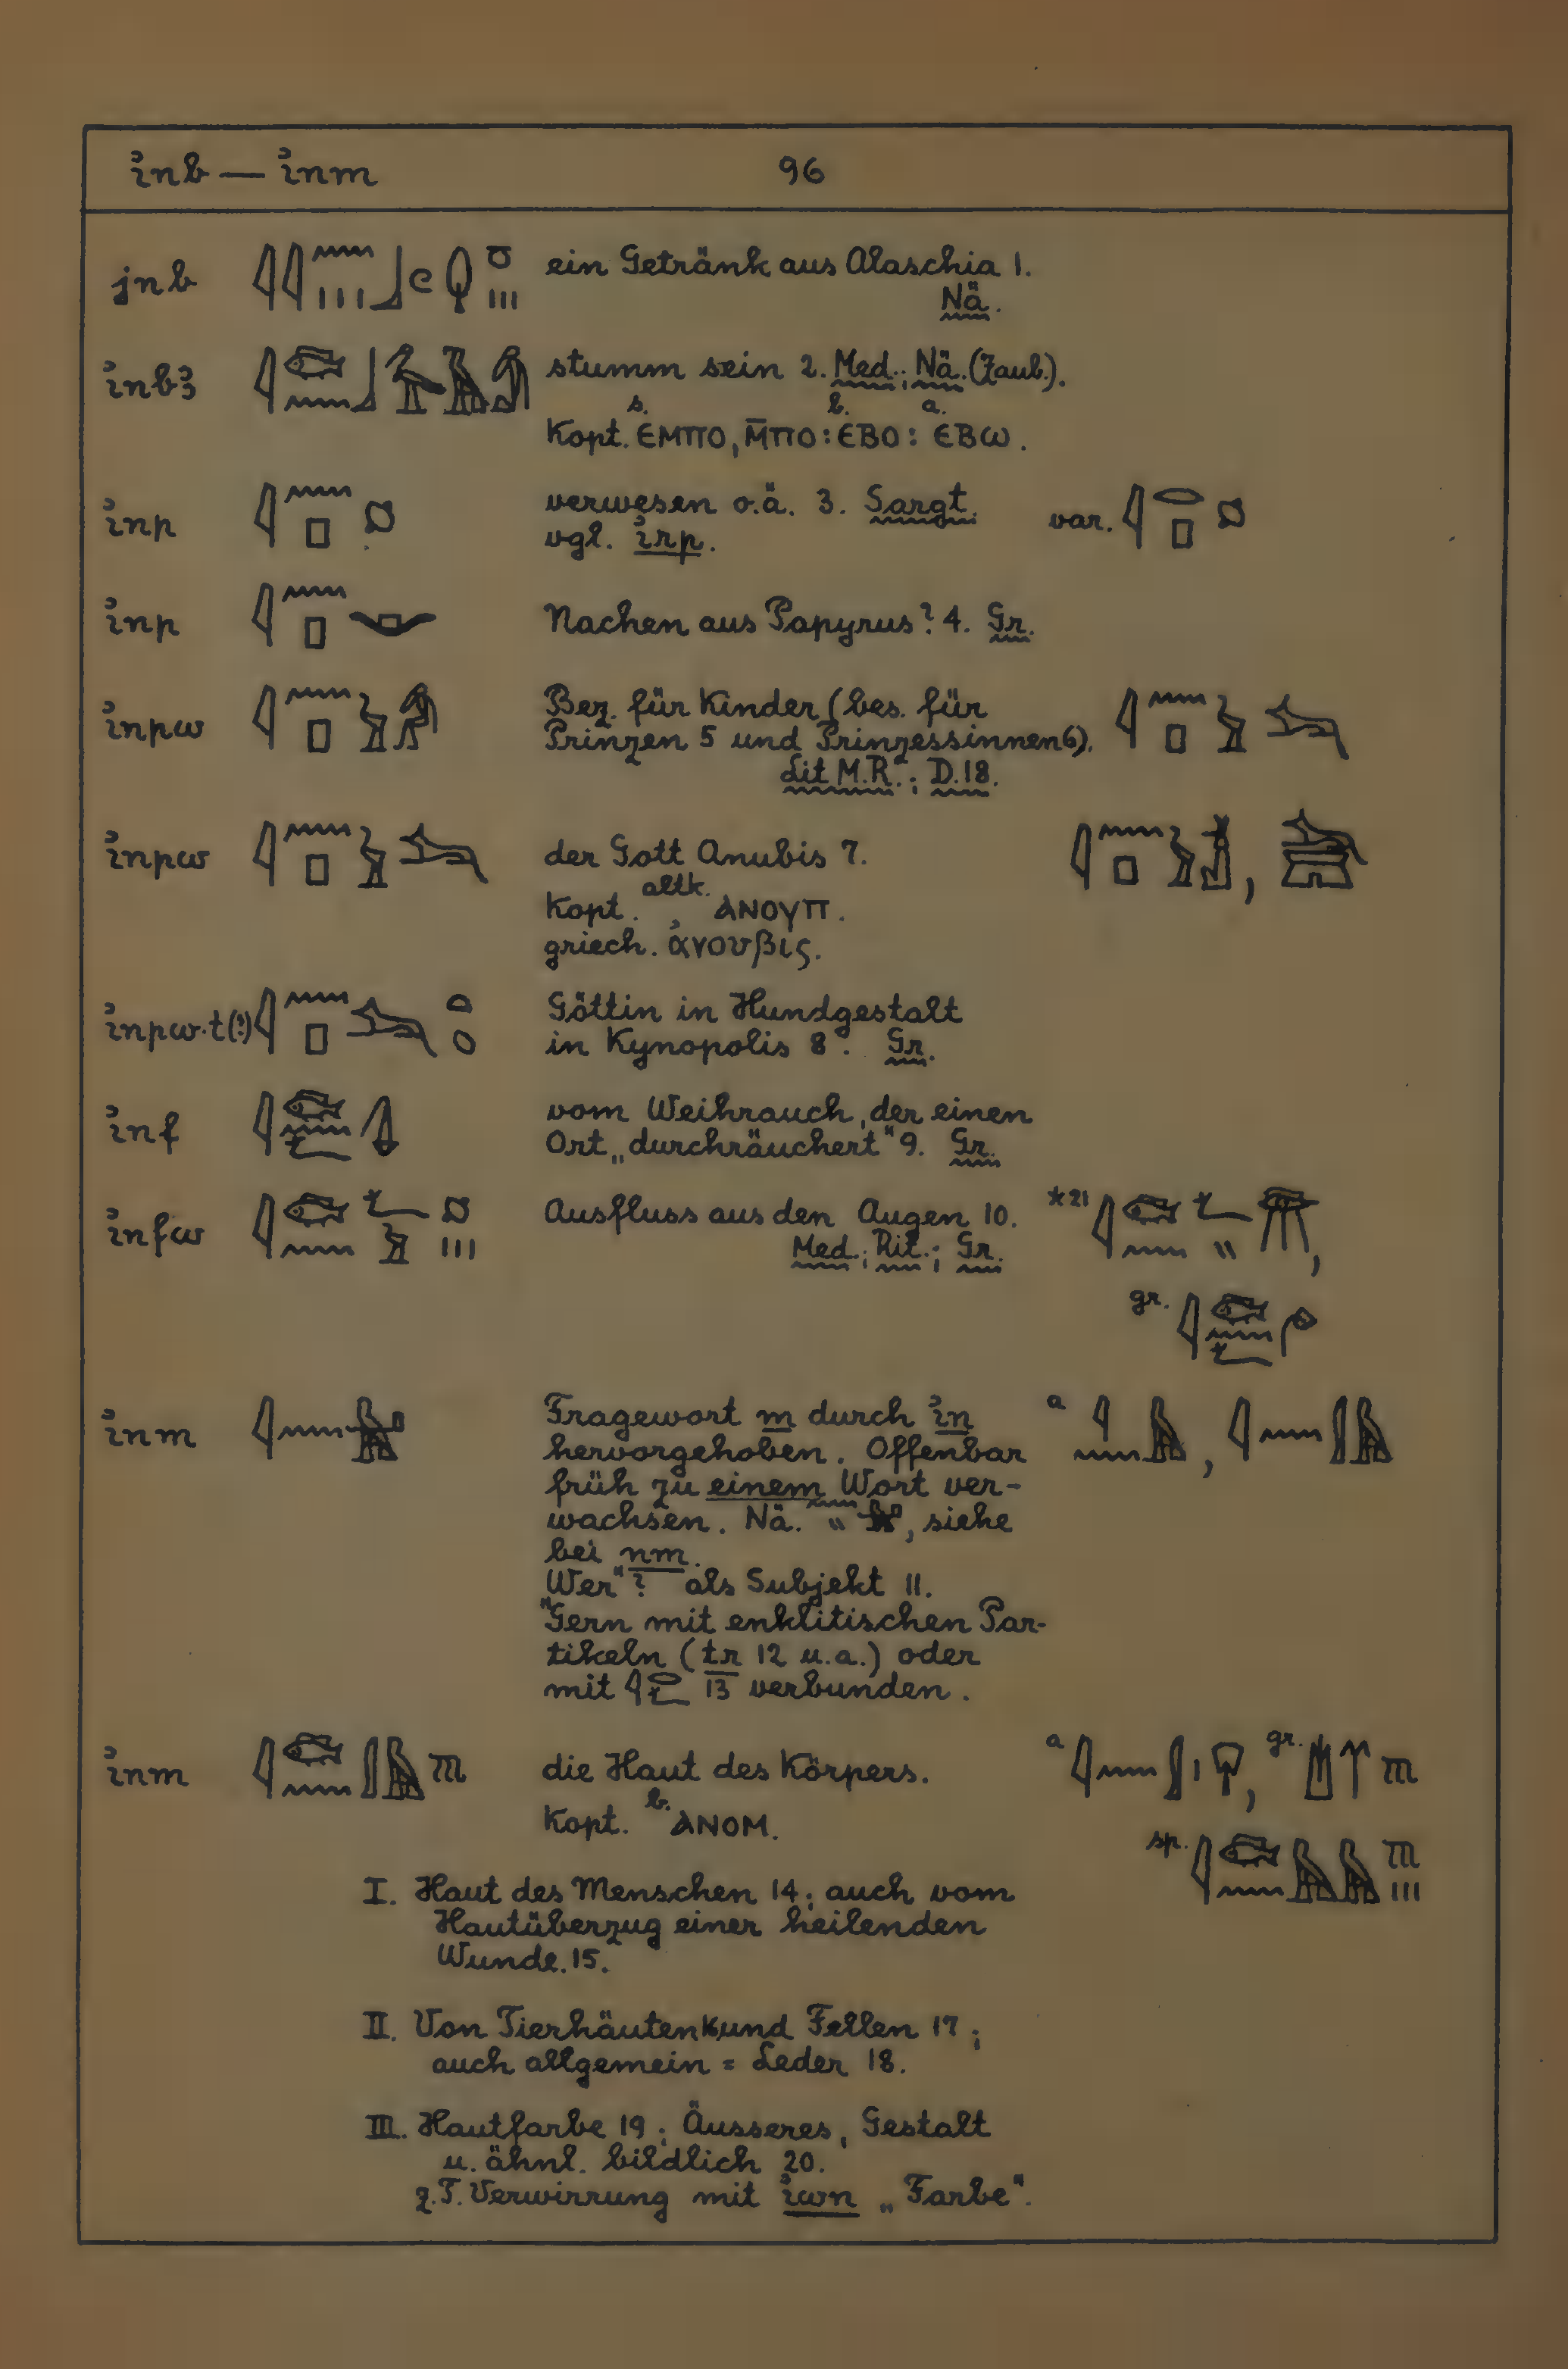 ỉnb — ỉnm 96
jnb ein Getränk aus Alaschia 1.
Nä.
ỉnbꜣ stumm sein 2. Med.; Nä. (Zaub.).
s. b. a.
Kopt. ⲉⲙⲡⲟ, ⲙ̄ⲡⲟ : ⲉⲃⲟ : ⲉⲃⲱ.
ỉnp verwesen o.ä. 3. Sargt. var.
vgl. ỉrp.
ỉnp Nachen aus Papyrus? 4. Gr.
ỉnpw Bez. für Kinder (bes. für
Prinzen 5 und Prinzessinnen 6).
Lit M.R.; D.18.
ỉnpw der Gott Anubis 7.
altk.
Kopt. ⲁⲛⲟⲩⲡ.
griech. ἀνουβις.
ỉnpw·t(?) Göttin in Hundgestalt
in Kynopolis 8. Gr.
ỉnf vom Weihrauch, der einen
Ort „durchräuchert" 9. Gr.
ỉnfw Ausfluss aus den Augen 10. *21
Med.; Rit.; Gr.
gr.
ỉnm Fragewort m durch ỉn a
hervorgehoben. Offenbar
früh zu einem Wort ver-
wachsen. Nä. , siehe
bei nm.
„Wer"? als Subjekt 11.
Gern mit enklitischen Par-
tikeln (tr 12 u.a.) oder
mit 13 verbunden.
ỉnm die Haut des Körpers. a gr.
Kopt. b. ⲁⲛⲟⲙ.
sp.
I. Haut des Menschen 14; auch vom
Hautüberzug einer heilenden
Wunde. 15.
II. Von Tierhäuten 16 und Fellen 17;
auch allgemein = Leder 18.
III. Hautfarbe 19; Äusseres, Gestalt
u. ähnl. bildlich 20.
z.T. Verwirrung mit ỉwn „Farbe".